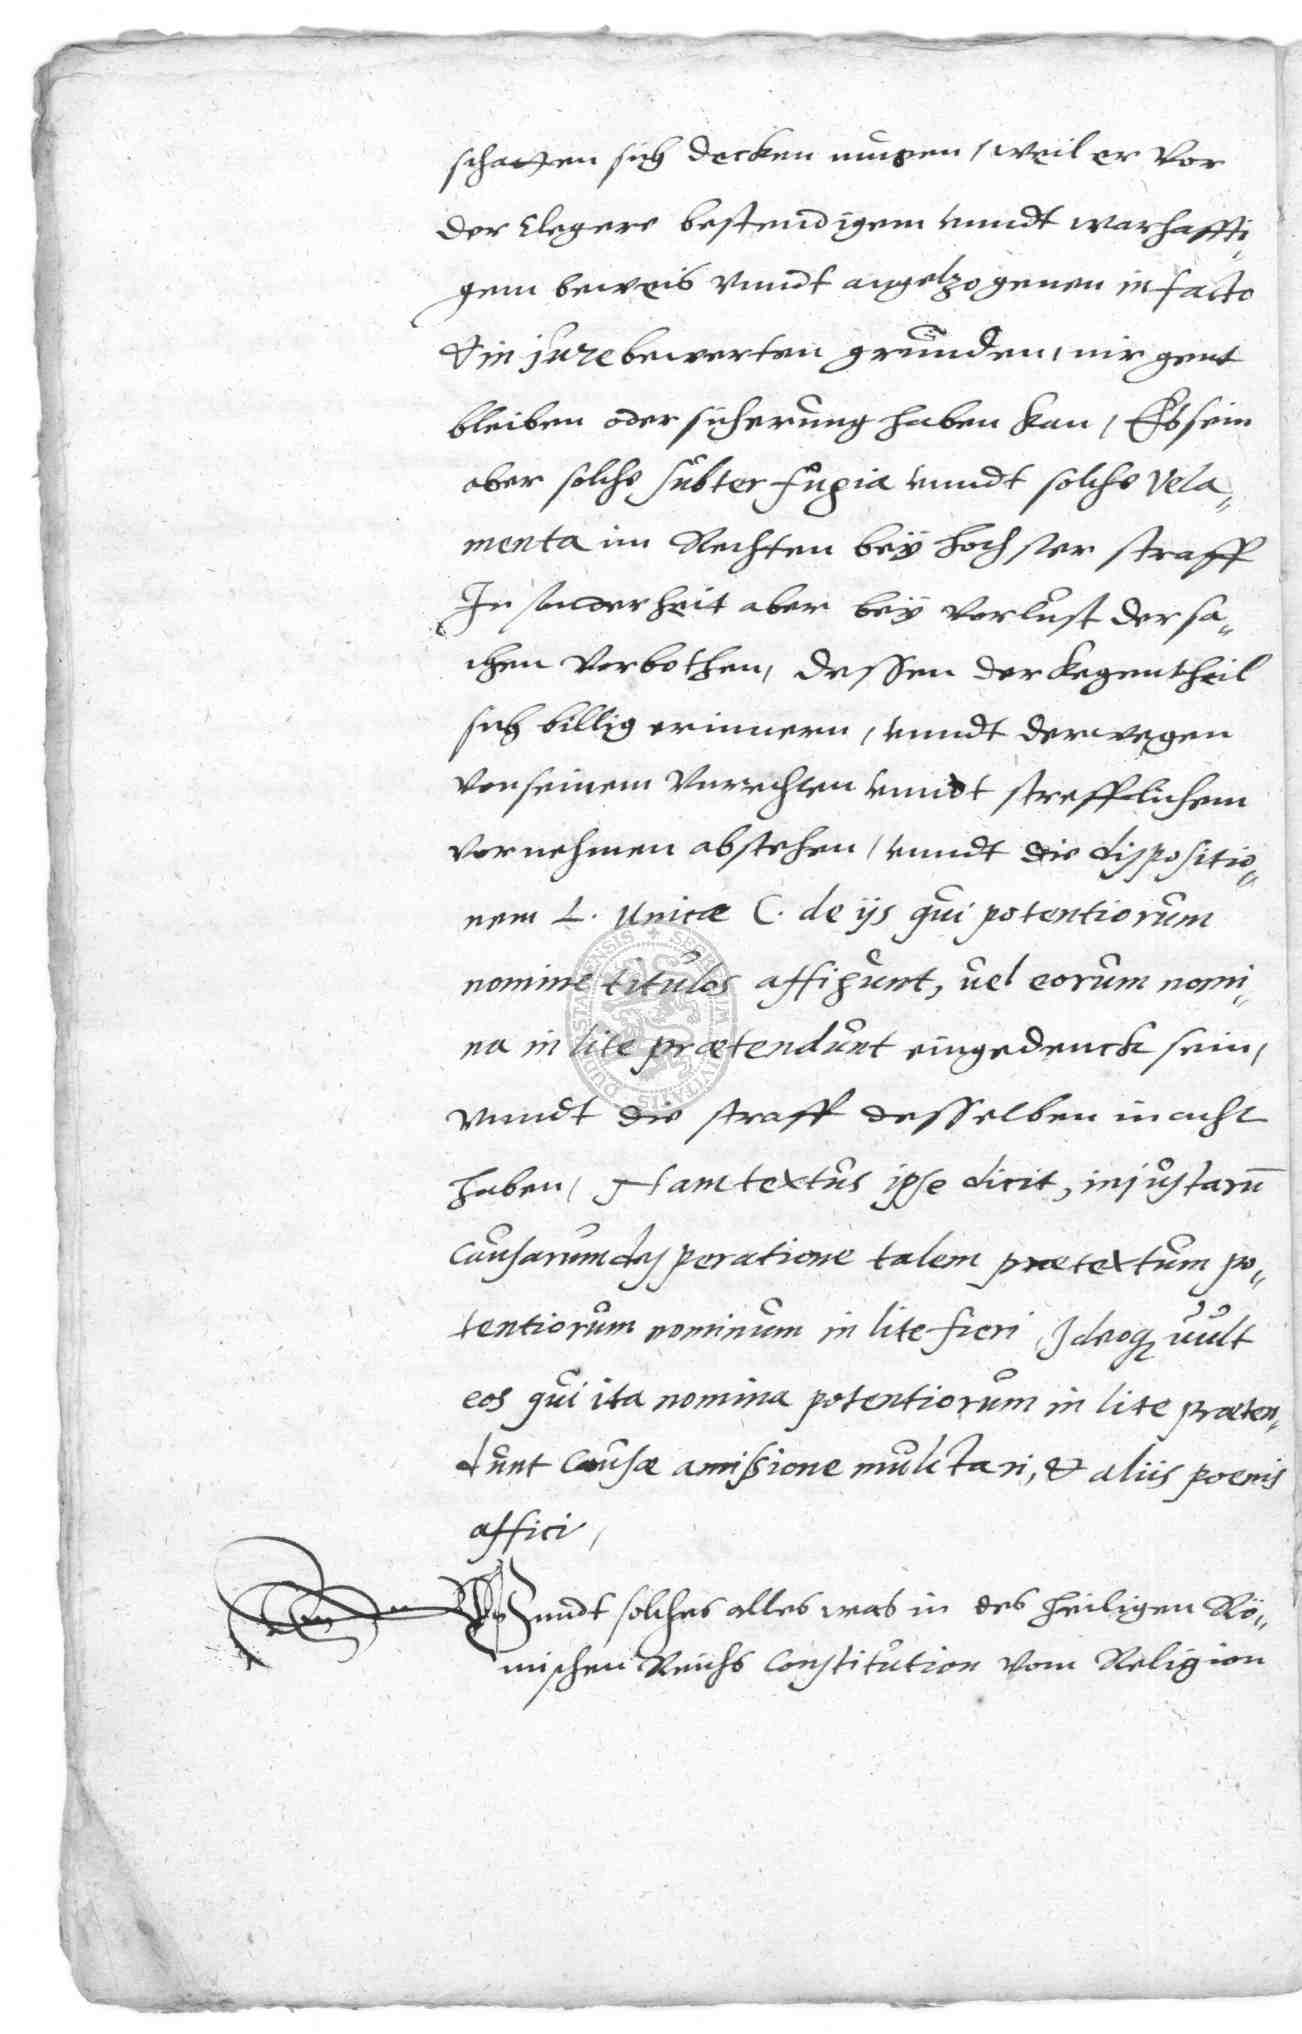 schatten sich decken mußen, weil er vor
der Clegere bestendigem vnndt warhaffti„
gem beweis vnndt angetzogenen in facto
& in jure bewerten grunden, nirgent
bleiben oder sicherung haben kan, Es sein
aber solche subterfugia vnndt solche vela„
menta im Rechten beÿ hochster straff
In sonderheit aber beÿ vorlust der sa„
chen vorbothen, dessen der kegentheil
sich billig erinnern, vnndt derwegen
von seinem vnrechten vnndt strefflichem
vornehmen abstehen, vnndt die dispositio„
nem L. Unicæ C. de ijs qui potentiorum
nomine titulos affigunt, vel eorum nomi„
na in lite prætendunt eingedenck sein,
vnndt die straff desselben in acht
haben, Nam textus ipse dicit, injustarū
causarum desperatione talem prætextum po„
tentiorum nominum in lite fieri, Ideoq₃ vult
eos qui ita nomina potentiorum in lite præten„
dunt causæ amißione mulctari, & aliis poenis
affici,
Vnndt solches alles was in des heiligen Rö„
mischen Reichs Constitution vom Religion